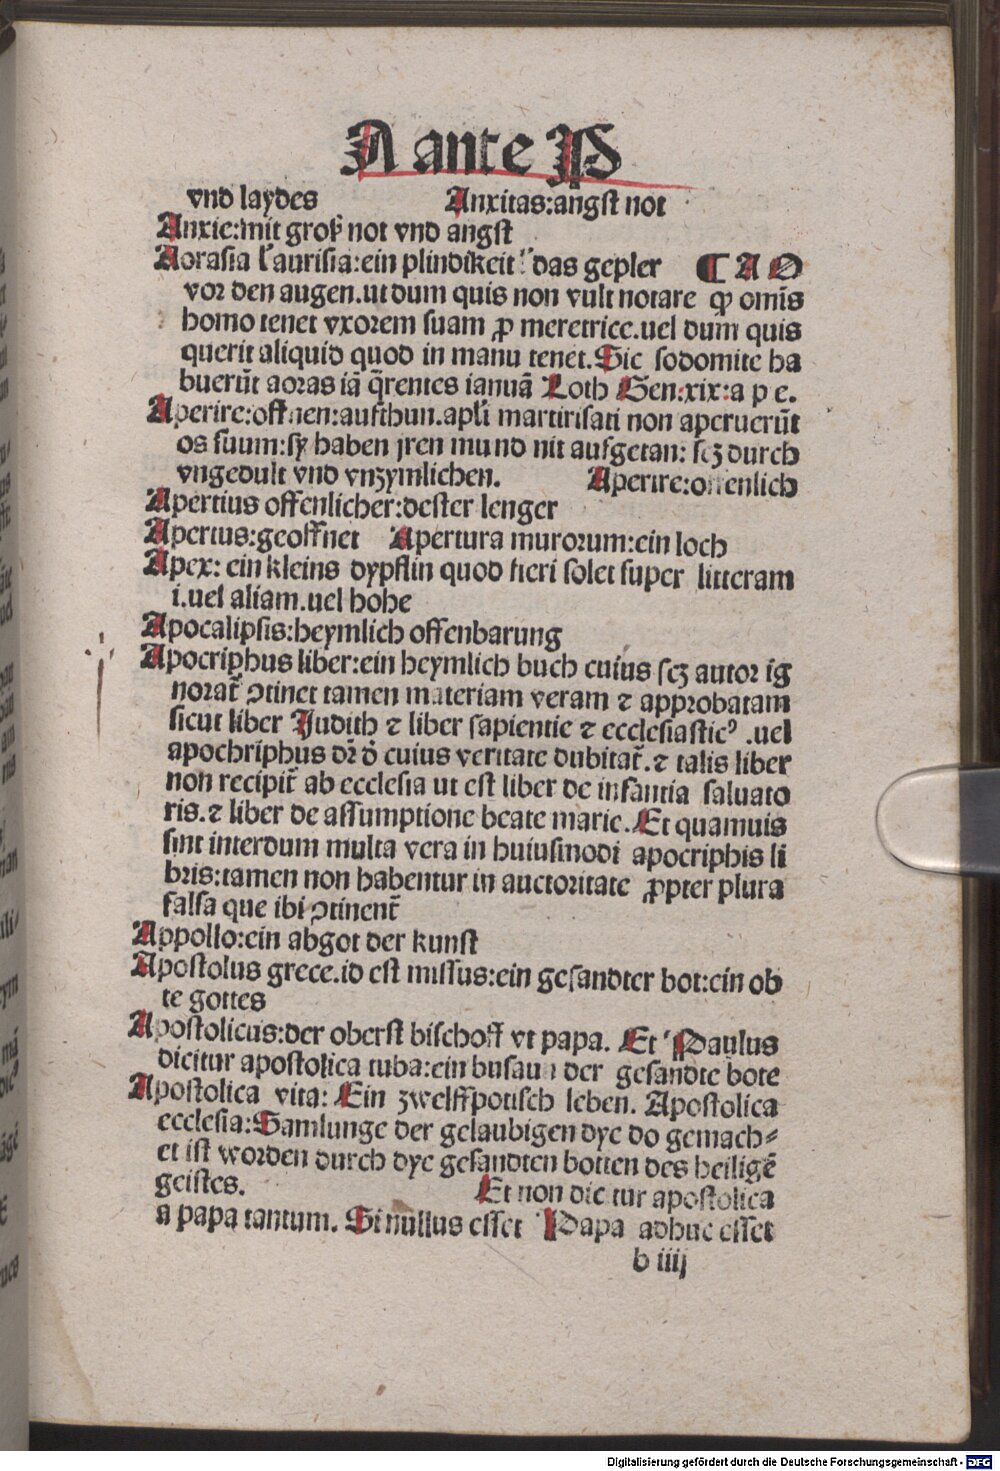 A ante P
vnd laydes Anxitas:angst not
Anxie:mit groß not vnd angst
Aorasia l' aurisia:ein plindikeit das gepler ¶ A O
vor den augen.ut dum quis non vult notare ꝙ omīs
homo tenet vxorem suam ꝓ meretrice.uel dum quis
querit aliquid quod in manu tenet.Sic sodomite ha
buerūt aoras iā q̄rentes ianuā Loth Gen:xix:a p e.
Aperire:offnen:aufthun.apl'i martirisati non aperuerūt
os suum:sꝫ haben jren mund nit aufgetan: scꝫ durch
vngedult vnd vnzymlichen. Aperire:offenlich
Apertius offenlicher:dester lenger
Apertus:geoffnet Apertura murorum:ein loch
Apex: ein kleins dypflin quod fieri solet super litteram
i.uel aliam.uel hohe
Apocalipsis:heymlich offenbarung
Apocriphus liber:ein heymlich buch cuius scꝫ autor iḡ
norat̄ ꝯtinet tamen materiam veram ⁊ approbatam
sicut liber Judith ⁊ liber sapientie ⁊ ecclesiasticꝰ .uel
apochriphus dr̄ d̄ cuius veritate dubitat̄.⁊ talis liber
non recipit̄ ab ecclesia ut est liber de infantia saluato
ris.⁊ liber de assumptione beate marie.Et quamuis
sint interdum multa vera in huiusmodi apocriphis li
bris:tamen non habentur in auctoritate ꝓpter plura
falsa que ibi ꝯtinent̄
Appollo:ein abgot der kunst
Apostolus grece.id est missus:ein gesandter bot:ein ob
te gottes
Apostolicus:der oberst bischoff vt papa. Et Paulus
dicitur apostolica tuba:ein busaun der gesandte bote
Apostolica vita: Ein zwelffpotisch leben. Apostolica
ecclesia:Samlunge der gelaubigen dye do gemach⸗
et ist worden durch dye gesandten botten des heiligē
geistes. Et non dicitur apostolica
a papa tantum. Si nullus esset Papa adhuc esset
b iiij
Digitalisierung gefördert durch die Deutsche Forschungsgemeinschaft - DFG